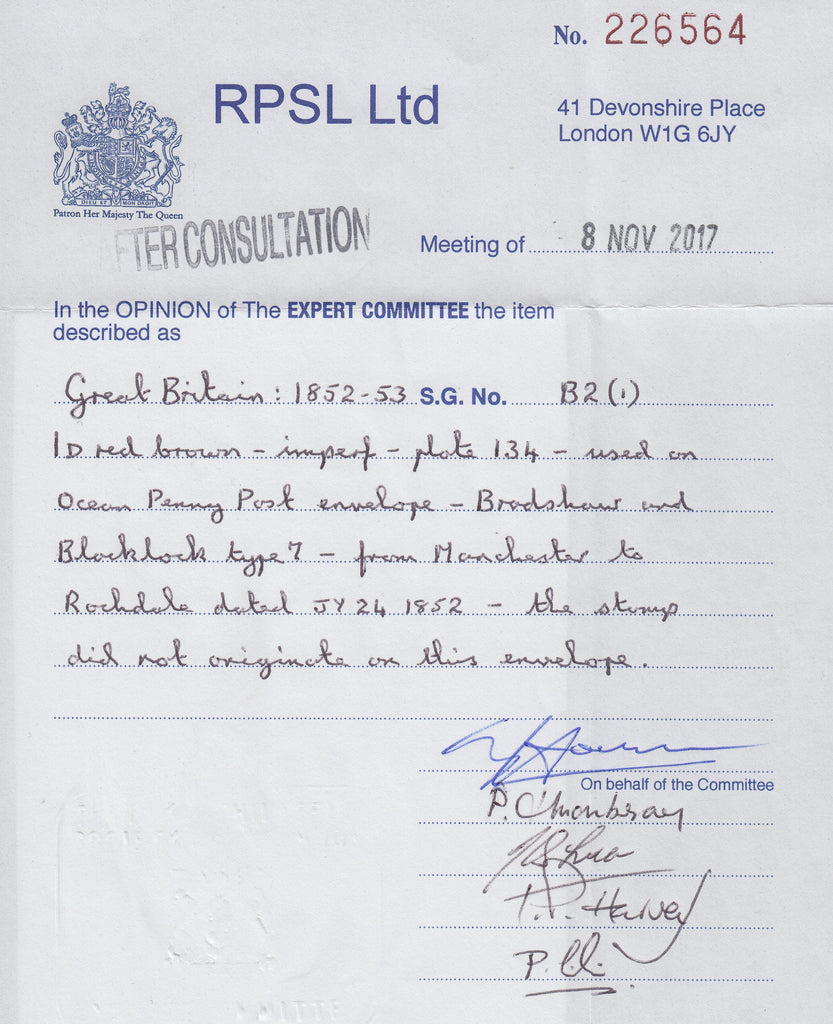 No. 226564
RPSL Ltd
41 Devonshire Place
London W1G 6JY
DIEU ET MON DROIT
Patron Her Majesty The Queen
AFTER CONSULTATION
Meeting of 8 NOV 2017
In the OPINION of The EXPERT COMMITTEE the item
described as
Great Britain : 1852-53 S.G. No. B2(1)
1D red brown - imperf - plate 134 - used on
Ocean Penny Post envelope - Bradshaw and
Blacklock type 7 - from Manchester to
Rochdale dated JY 24 1852 - the stamp
did not originate on this envelope.
On behalf of the Committee
P.
T.P. Harvey
P.